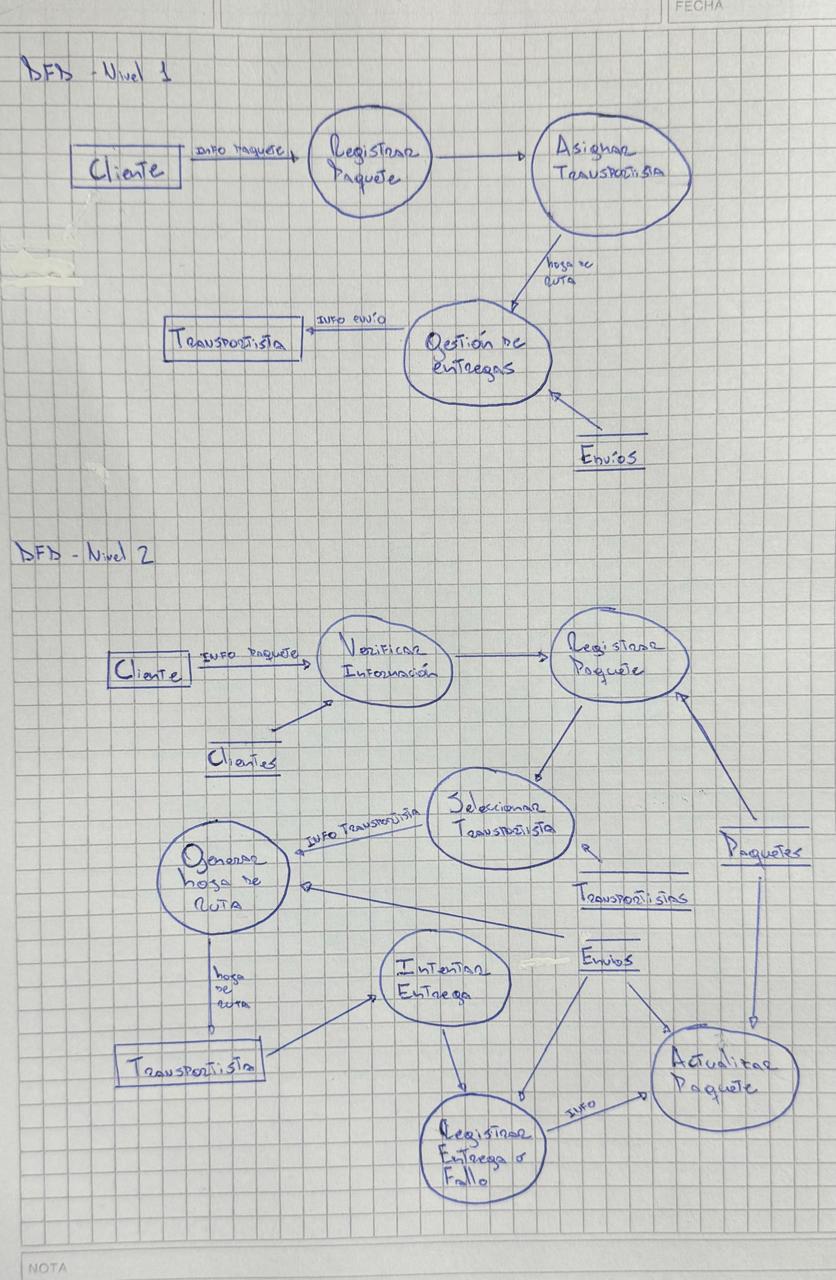 FECHA
DFD - Nivel 1
Cliente
INFO Paquete
Registrar
Paquete
Asignar
Transportista
hoja de
ruta
Transportista
INFO envío
Gestión de
entregas
Envíos
DFD - Nivel 2
Cliente
INFO Paquete
Verificar
Información
Registrar
Paquete
Clientes
Seleccionar
Transportista
INFO Transportista
Generar
hoja de
ruta
Paquetes
Transportistas
Envios
Intentar
Entrega
hoja
de
ruta
Transportista
Actualizar
Paquete
INFO
Registrar
Entrega o
Fallo
NOTA